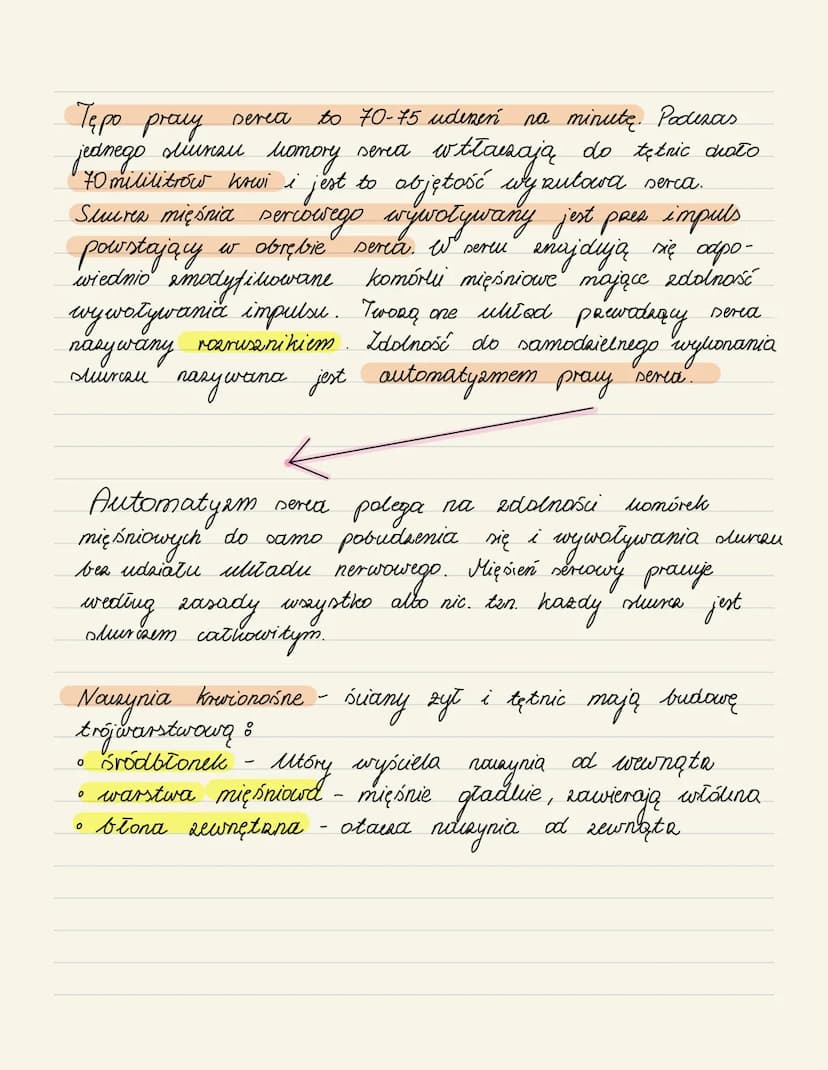 Tępo pracy serca to 70-75 uderzeń na minutę. Podczas
jednego skurczu komory serca wtłaczają do tętnic około
70 mililitrów krwi i jest to objętość wyrzutowa serca.
Skurcz mięśnia sercowego wywoływany jest przez impuls
powstający w obrębie serca. W sercu znajdują się odpo-
wiednio zmodyfikowane komórki mięśniowe mające zdolność
wywoływania impulsu. Tworzą one układ przewodzący serca
nazywany rozrusznikiem. Zdolność do samodzielnego wykonania
skurczu nazywana jest automatyzmem pracy serca.
Automatyzm serca polega na zdolności komórek
mięśniowych do samo pobudzenia się i wywoływania skurczu
bez udziału układu nerwowego. Mięsień sercowy pracuje
według zasady wszystko albo nic. tzn. każdy skurcz jest
skurczem całkowitym.
Naczynia krwionośne - ściany żył i tętnic mają budowę
trójwarstwową :
• śródbłonek - który wyściela naczynia od wewnątrz
• warstwa mięśniowa - mięśnie gładkie, zawierają włókna
• błona zewnętrzna - otacza naczynia od zewnątrz